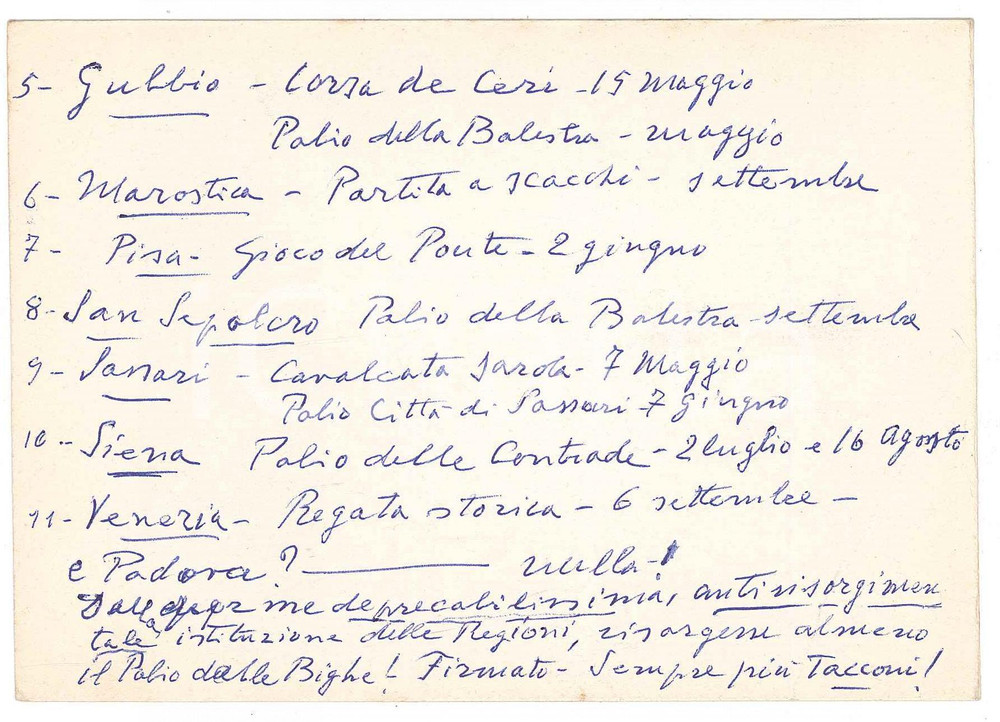 5- Gubbio - Corsa de Ceri - 15 Maggio
Palio della Balestra - maggio
6- Marostica - Partita a scacchi - settembre
7- Pisa - Gioco del Ponte - 2 giugno
8- San Sepolcro Palio della Balestra - settembre
9- Sassari - Cavalcata Sarda - 7 Maggio
Palio Città di Sassari 7 Giugno
10- Siena Palio delle Contrade - 2 luglio e 16 Agosto
11- Venezia - Regata storica - 6 settembre -
e Padova? nulla!
Dalla per me deprecabilissima, antirisorgimen
tale istituzione delle Regioni, risorgesse almeno
il Palio delle Bighe! Firmato - Sempre più Tacconi!